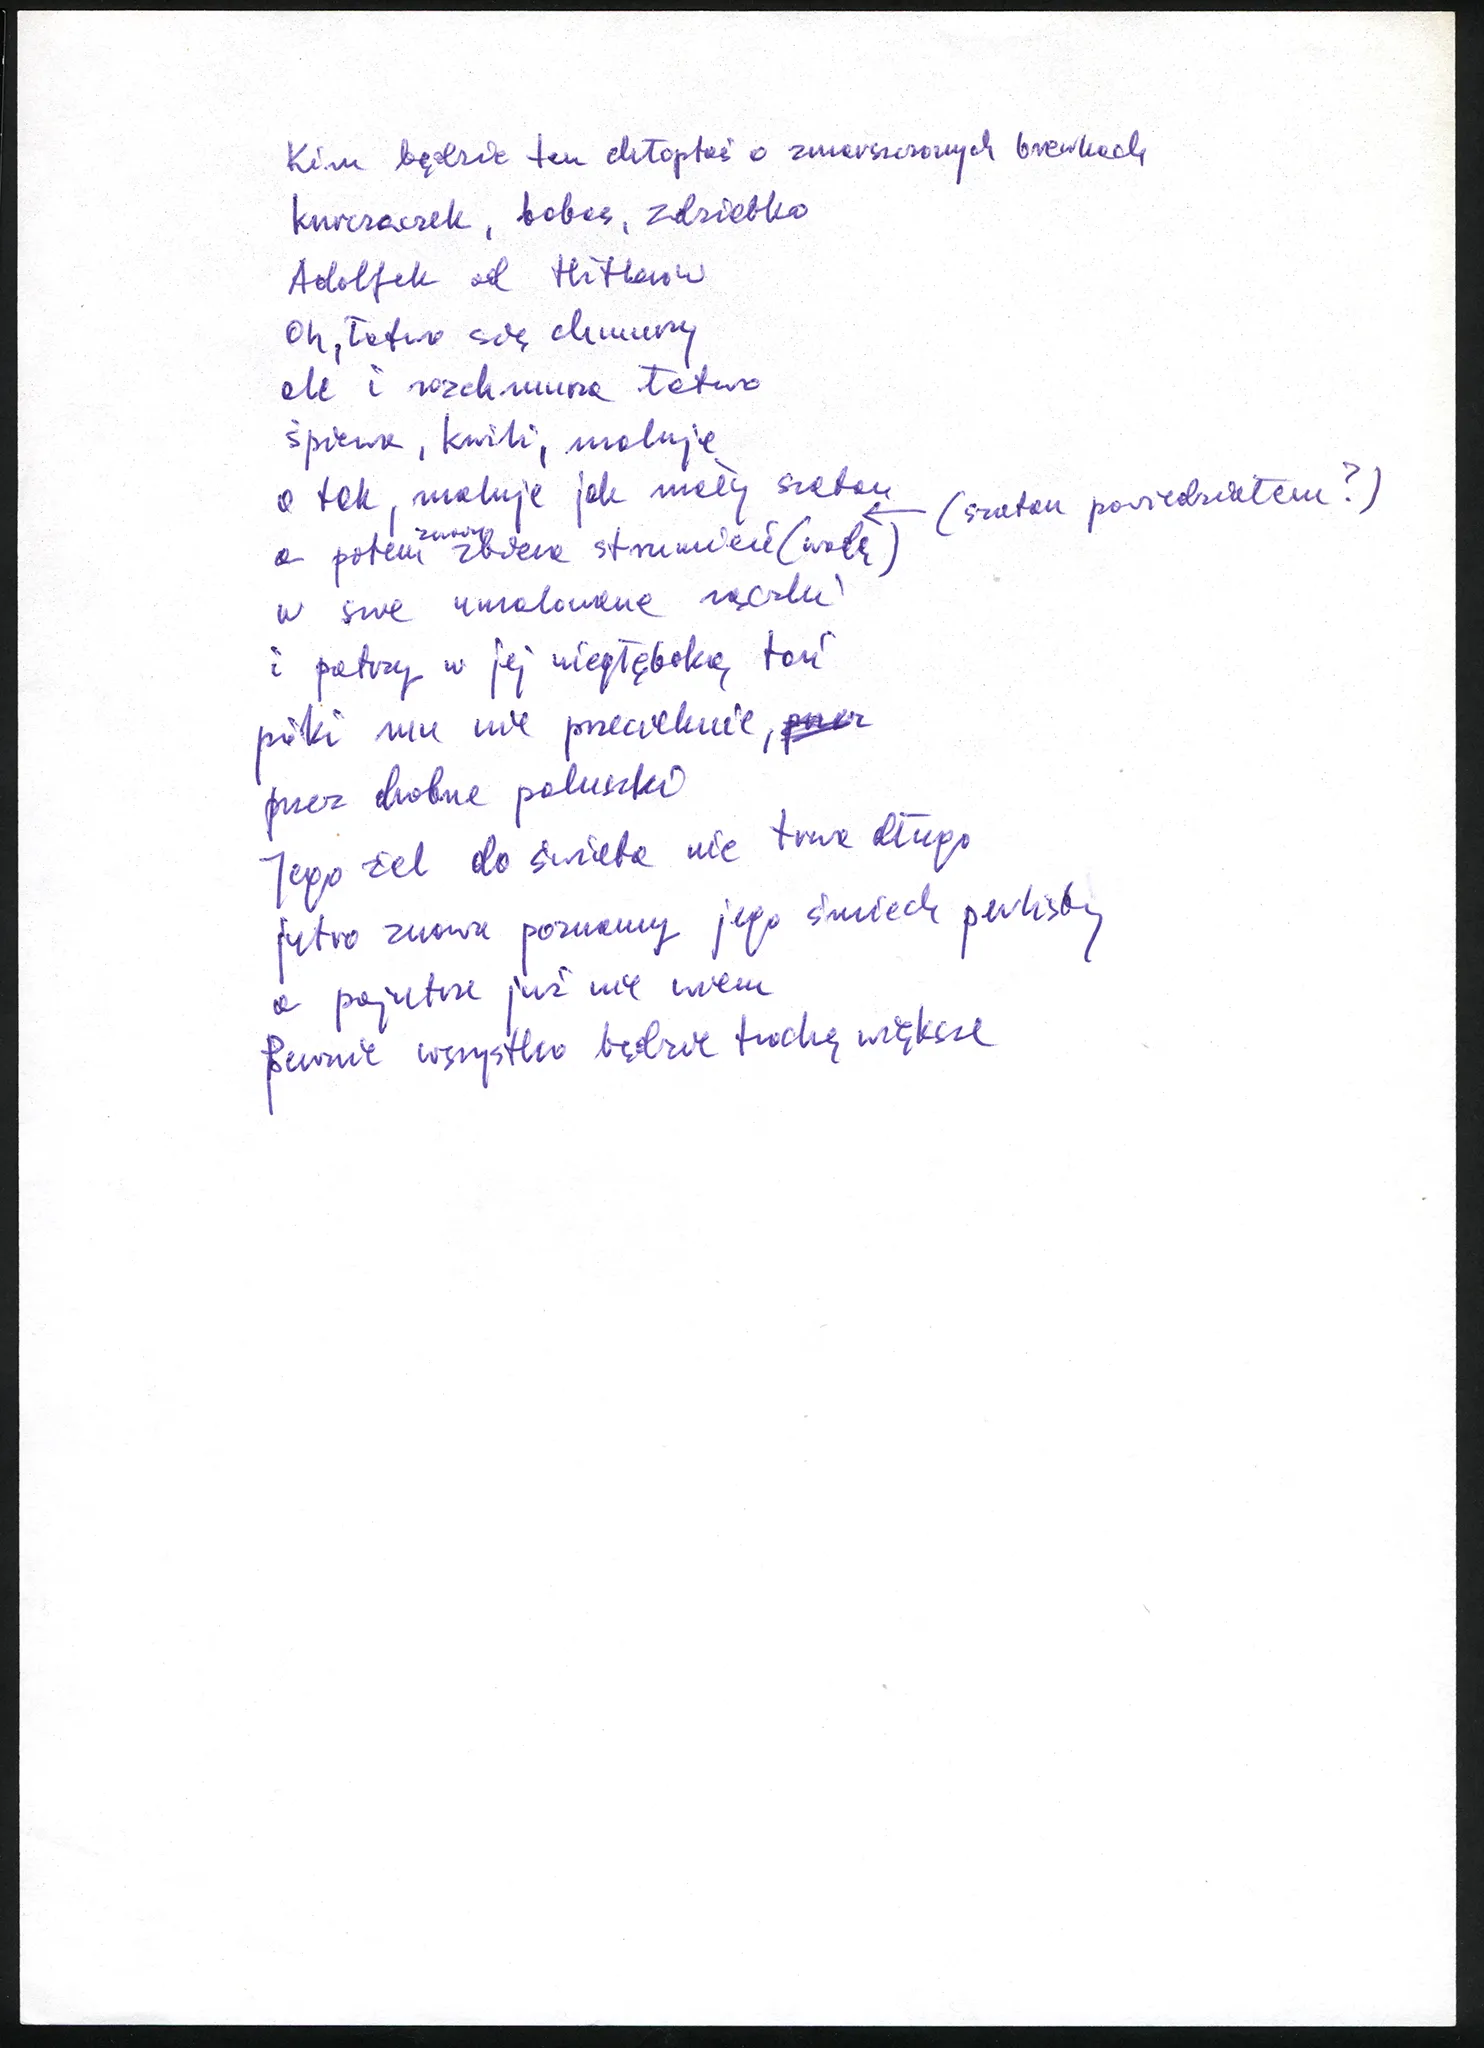 Kim będzie ten chłoptaś o zmarszczonych brewkach
kurczaczek, bobas, zdziebko
Adolfek od Hitlerów
Oh, łatwo się chmurzy
ale i rozchmurza łatwo
śpiewa, kwili, maluje
o tak, maluje jak mały szatan ← (szatan powiedziałem?)
znowu
a potem zbiera strumień (wodę)
w swe umalowane rączki
i patrzy w jej niegłęboką toń
póki mu nie przecieknie, przez
przez drobne paluszki
Jego żal do świata nie trwa długo
jutro znowu poznamy jego śmiech perlisty
a pojutrze już nie wiem
Pewnie wszystko będzie trochę większe